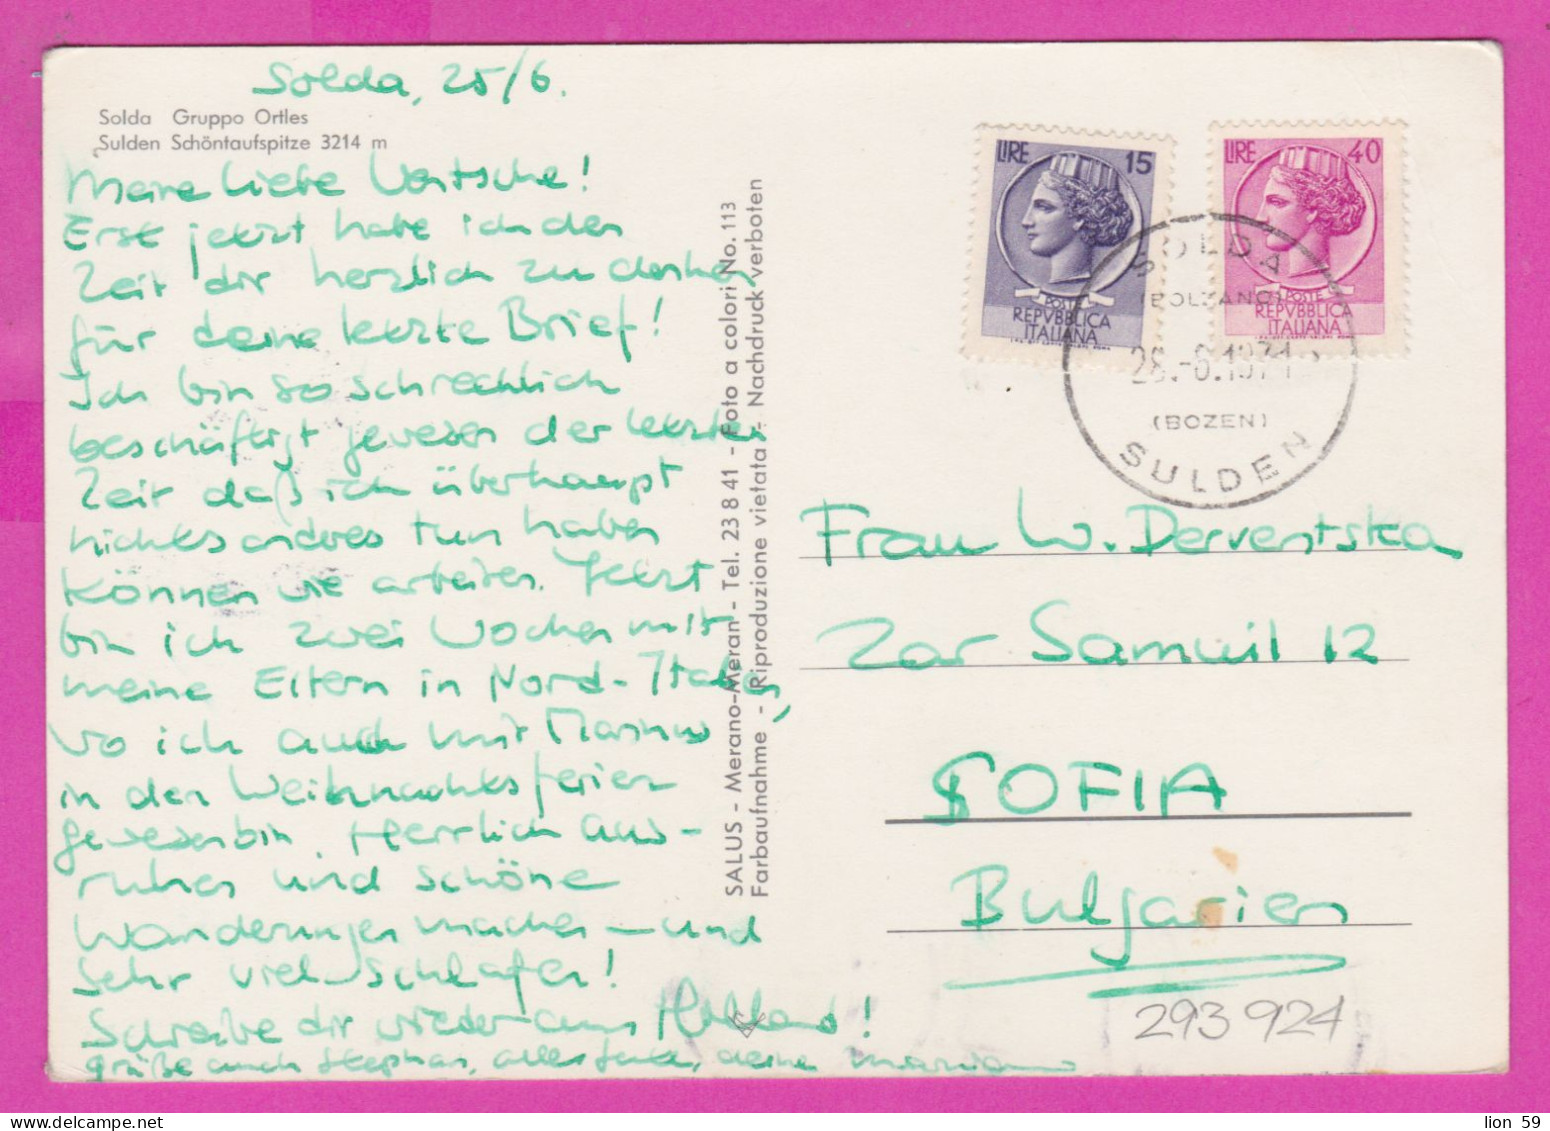 Solda, 25/6.
Solda Gruppo Ortles
Sulden Schöntaufspitze 3214 m
Meine liebe Wentsche!
Erst jetzt habe ich den
Zeit dir herzlich zu danken
für deine letzte Brief!
Ich bin so schrecklich
beschäftigt gewesen der letzte
Zeit daß ich überhaupt
nichts andres tun haben
können wie arbeiten. Jetzt
bin ich zwei Wochen mit
meine Eltern in Nord-Italien,
wo ich auch mit Marinus
in den Weihnachtsferien
gewesen bin. Herrlich aus-
ruhen und schöne
Wanderungen machen - und
sehr viel schlafen!
Schreibe dir wieder aus Holland!
grüße auch Stephan, alles Gute, deine
SALUS - Merano-Meran - Tel. 23 8 41 - Foto a colori No. 113
Farbaufnahme - Riproduzione vietata - Nachdruck verboten
LIRE 15
POSTE
REPVBBLICA
ITALIANA
LIRE 40
POSTE
REPVBBLICA
ITALIANA
SOLDA
(BOLZANO)
28.-6.1971
(BOZEN)
SULDEN
Frau W. Derventska
Zar Samuil 12
SOFIA
Bulgarien
293924
lion 59